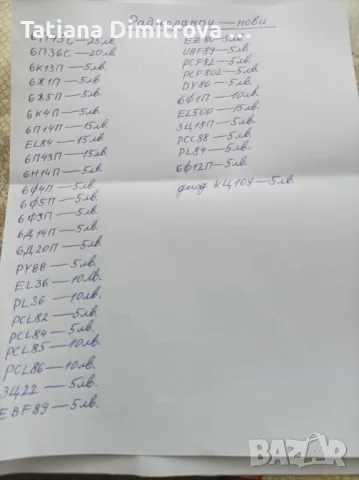 Tatiana Dimitrova ...
Радиолампи — нови
25лв.
6П36С — 20лв
6К13П — 5лв.
6Ж1П — 5лв.
6Ж5П — 5лв.
6К4П — 5лв.
6П14П — 15лв.
EL84 — 15лв.
6П43П — 15лв
6Н14П — 5лв.
6Ф4П — 5лв.
6Ф5П — 5лв.
6Ф3П — 5лв.
6Д14П — 5лв.
6Д20П — 5лв.
PY88 — 5лв.
EL36 — 10лв.
PL36 — 10лв.
PCL82 — 5лв.
PCL84 — 5лв.
PCL85 — 10лв.
PCL86 — 10лв.
3Ц22 — 5лв.
EBF89 — 5лв.
EZ80 — 5лв.
UBF89 — 5лв.
PCF82 — 5лв.
PCF802 — 5лв.
DY86 — 5лв.
6Ф1П — 10лв.
EL500 — 15лв.
3Ц18П — 5лв.
PCC88 — 5лв.
PL84 — 5лв.
6Ф12П — 5лв.
диод КЦ109 — 5лв.
BAZAR